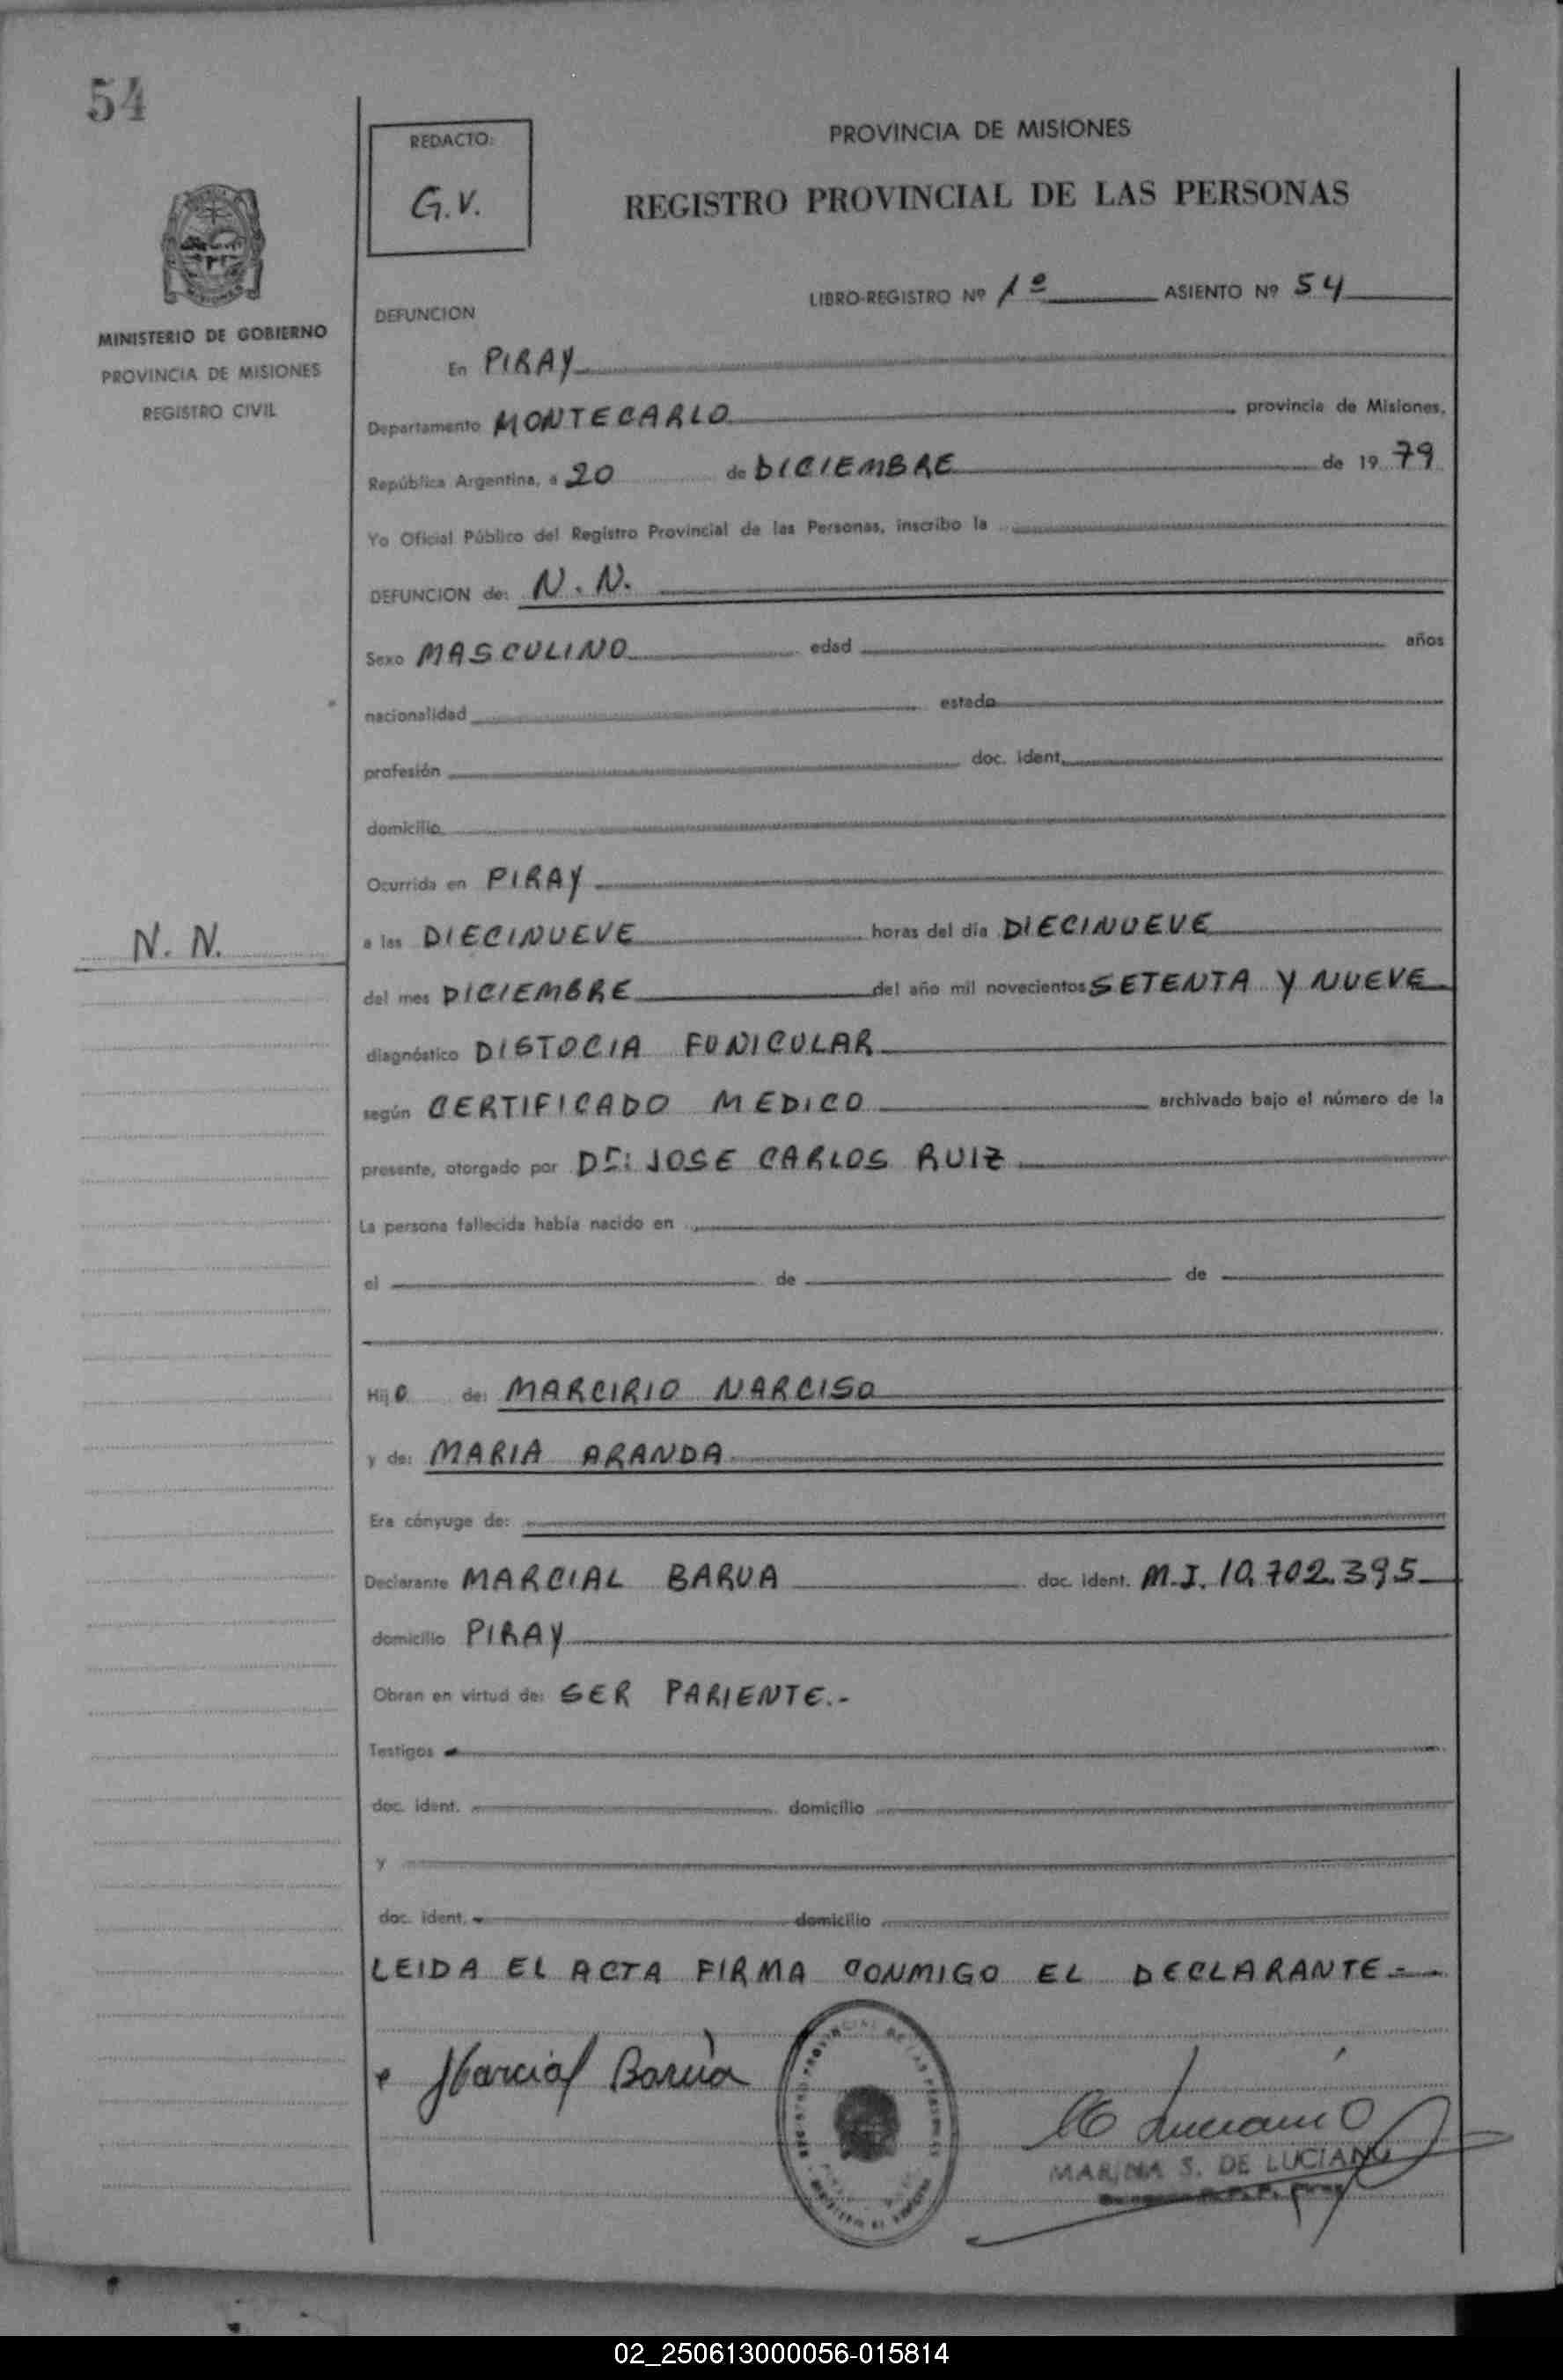 54
REDACTO:
G.V.
PROVINCIA DE MISIONES
REGISTRO PROVINCIAL DE LAS PERSONAS
MINISTERIO DE GOBIERNO
PROVINCIA DE MISIONES
REGISTRO CIVIL
LIBRO-REGISTRO Nº 1º ASIENTO Nº 54
DEFUNCION
En PIRAY
Departamento MONTECARLO provincia de Misiones,
República Argentina, a 20 de DICIEMBRE de 19 79
Yo Oficial Público del Registro Provincial de las Personas, inscribo la
DEFUNCION de: N. N.
Sexo MASCULINO edad años
nacionalidad estado
profesión doc. ident.
domicilio
Ocurrida en PIRAY
N. N.
a las DIECINUEVE horas del día DIECINUEVE
del mes DICIEMBRE del año mil novecientos SETENTA Y NUEVE
diagnóstico DISTOCIA FUNICULAR
según CERTIFICADO MEDICO archivado bajo el número de la
presente, otorgado por Dr: JOSE CARLOS RUIZ
La persona fallecida había nacido en
el de de
Hij O de: MARCIRIO NARCISO
y de: MARIA ARANDA
Era cónyuge de:
Declarante MARCIAL BARUA doc. ident. M.I. 10.702.395
domicilio PIRAY
Obran en virtud de: SER PARIENTE.-
Testigos
doc. ident. domicilio
y
doc. ident. domicilio
LEIDA EL ACTA FIRMA CONMIGO EL DECLARANTE.-
Marcial Barúa
MARINA S. DE LUCIANO
02_250613000056-015814